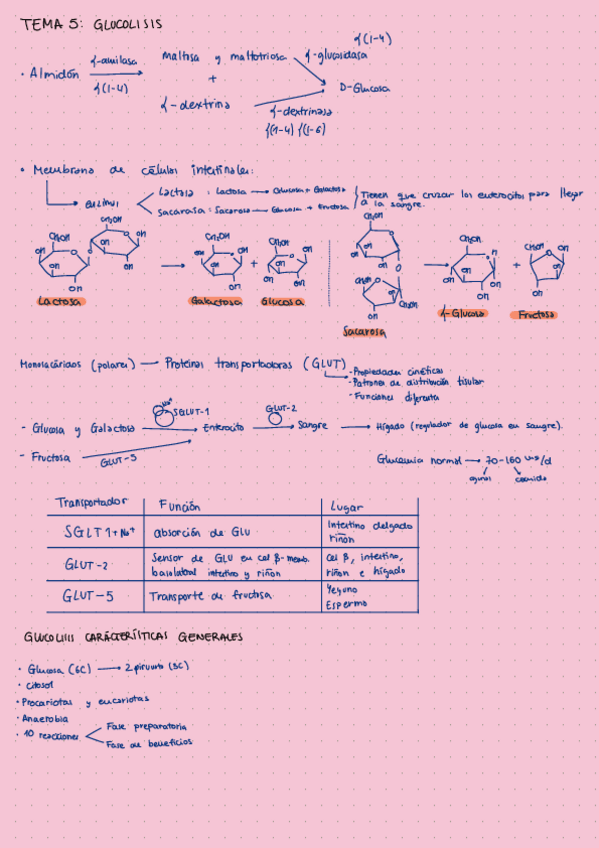 TEMA 5: GLUCOLISIS
α(1-4)
· Almidón α-amilasa maltosa y maltotriosa α-glucosidasa
α(1-4) + D-Glucosa
α-dextrina α-dextrinasa
α(1-4) α(1-6)
· Membrana de células intestinales:
enzimas
Lactasa: Lactosa → Glucosa + Galactosa
Sacarasa: Sacarosa → Glucosa + Fructosa
Tienen que cruzar los enterocitos para llegar
a la sangre.
CH2OH CH2OH CH2OH CH2OH CH2OH CH2OH CH2OH
OH OH OH OH OH OH OH
Lactosa Galactosa + Glucosa
Sacarosa α-Glucosa + Fructosa
Monosacáridos (polares) — Proteínas transportadoras (GLUT)
- Propiedades cinéticas
- Patrones de distribución tisular
- Funciones diferentes
- Glucosa y Galactosa Na+ SGLUT-1 → Enterocito GLUT-2 → Sangre → Hígado (regulador de glucosa en sangre).
- Fructosa GLUT-5
Glucemia normal → 70-160 mg/dl
ayunas comida
Transportador Función Lugar
SGLT1+Na+ absorción de Glu Intestino delgado
riñon
GLUT-2 Sensor de GLU en cel β-memb. Cel β, intestino,
basolateral intestino y riñón riñon e hígado
GLUT-5 Transporte de fructosa Yeyuno
Esperma
GLUCOLISIS CARÁCTERÍSTICAS GENERALES
· Glucosa (6C) → 2 piruvato (3C)
· Citosol
· Procariotas y eucariotas
· Anaerobia
· 10 reacciones
Fase preparatoria
Fase de beneficios